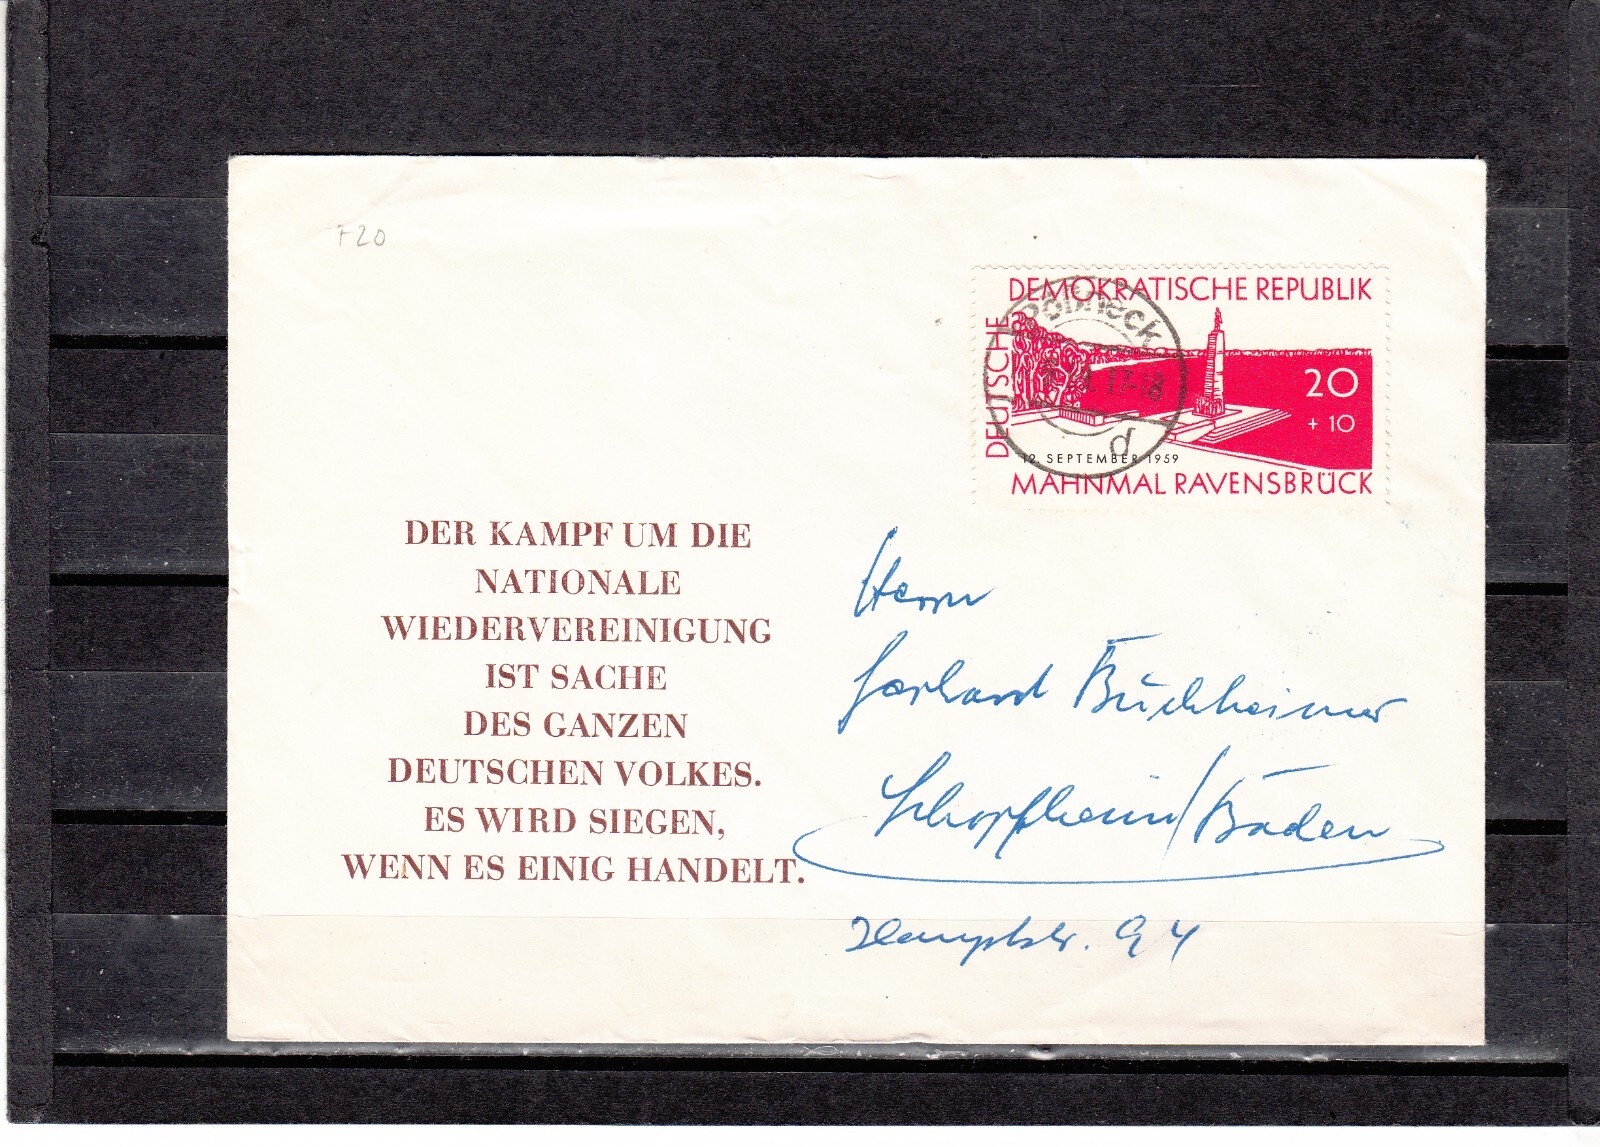 F20
DEUTSCHE
DEMOKRATISCHE REPUBLIK
Pößneck
17-18
d
20
+ 10
12. SEPTEMBER 1959
MAHNMAL RAVENSBRÜCK
DER KAMPF UM DIE
NATIONALE
WIEDERVEREINIGUNG
IST SACHE
DES GANZEN
DEUTSCHEN VOLKES.
ES WIRD SIEGEN,
WENN ES EINIG HANDELT.
Herrn
Gerhard Büchheimer
Schopfheim/Baden
Hauptstr. 94